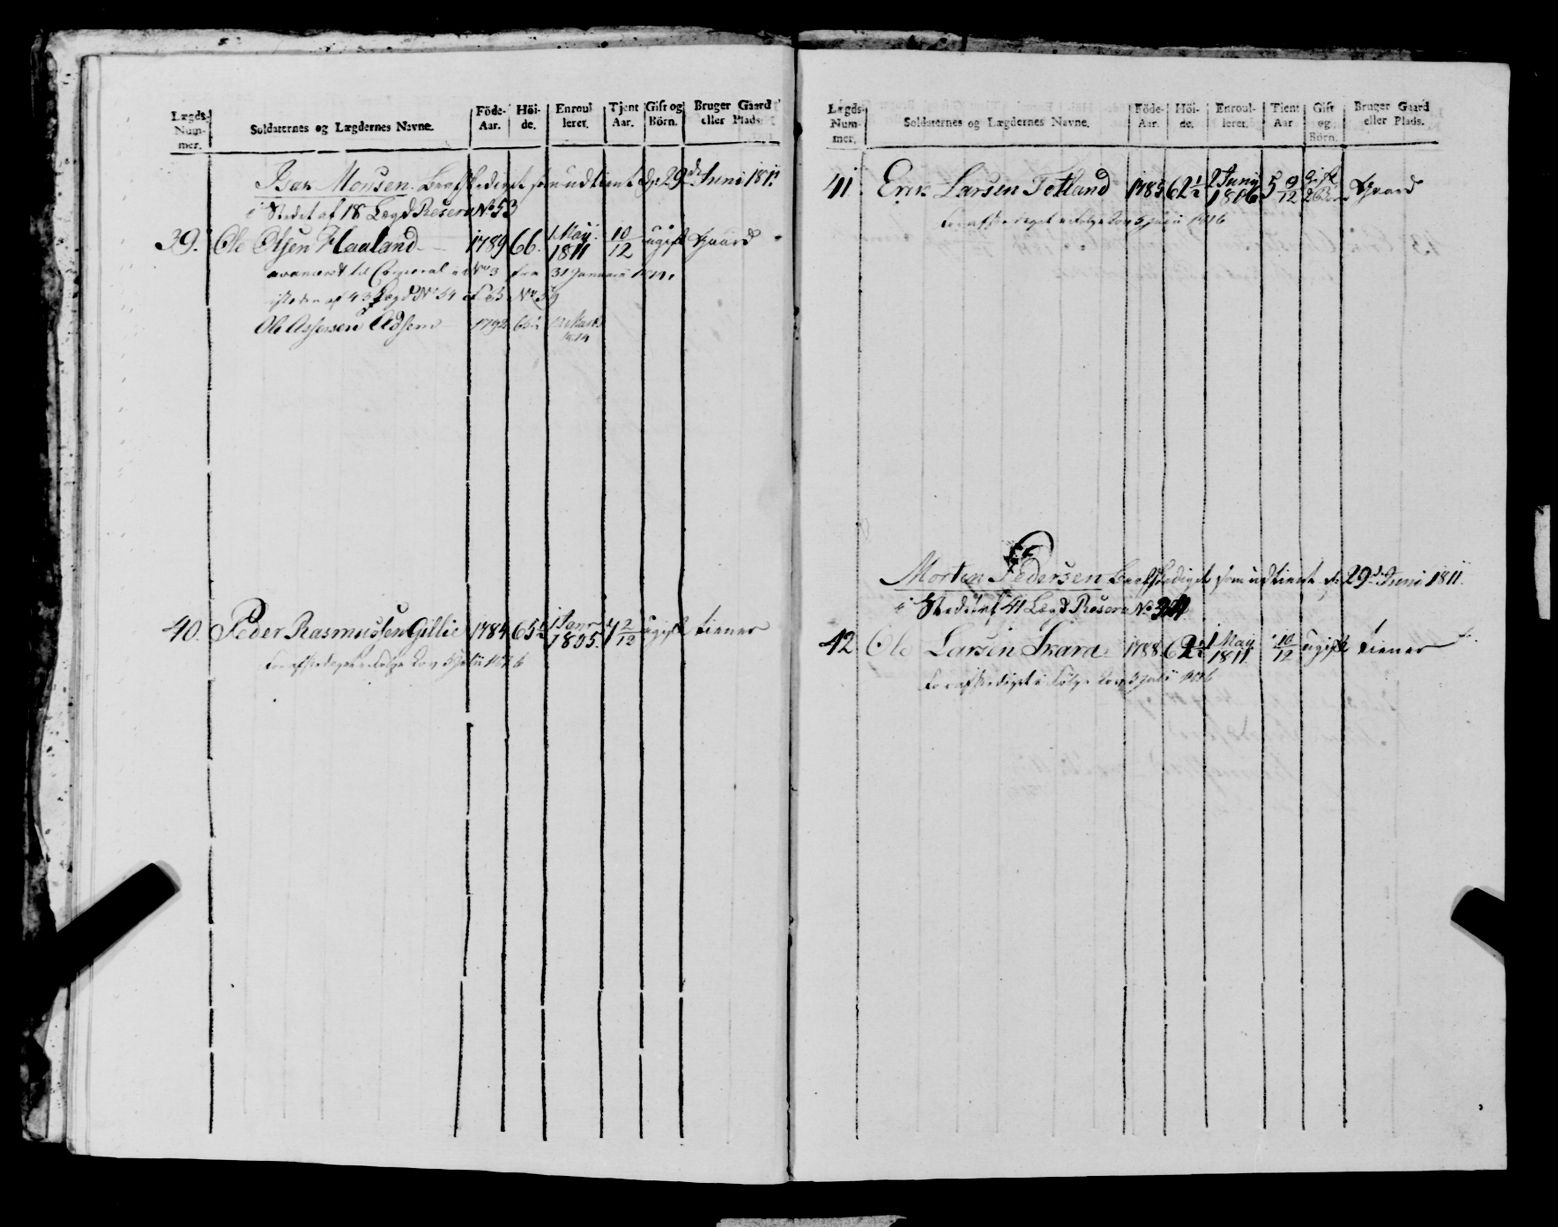 Lægds- Num- mer. Soldaternes og Lægdernes Navne. Föde- Aar. Höi- de. Enroul- leret. Tjent Aar. Gift og Börn. Bruger Gaard eller Plads.
Isak Monsen Beafskediget som udtient d. 29d Juni 1811
i Stedet af 18 Lægd Reserv No 53
39. Ole Olsen Haaland 1789 66. 1 Maij 1811 10/12 ugift Gaard
avanceret til Corporal No 3 fra 31 Januarii
isteden af 43 Lægd No 54
Ole Assersen 1792 Mart
40. Peder Rasmussen Gillie 1784 65½ 1 Janr 1805. 7 2/12 ugift tiener
er afskediget ifølge 5 Julii 1816
Lægds- Num- mer. Soldaternes og Lægdernes Navne. Föde- Aar. Höi- de. Enroul- leret. Tient Aar Gift og Börn. Bruger Gaard eller Plads.
41 Erik Larsen Totland 1785 62½ 2 Junij 1806 5 9/12 Gift 2 B Gaard
er afskediget ifølge 5 Julii 1816
Morten Pedersen Beafskediget som udtient d. 29d Juni 1811.
i Stedet af 41 Lægd Reserv No
42 Ole Larsen Skara 1788 62½ 1 Maij 1811 10/12 ugift tiener
er afskediget i Følge 5 Julii 1816